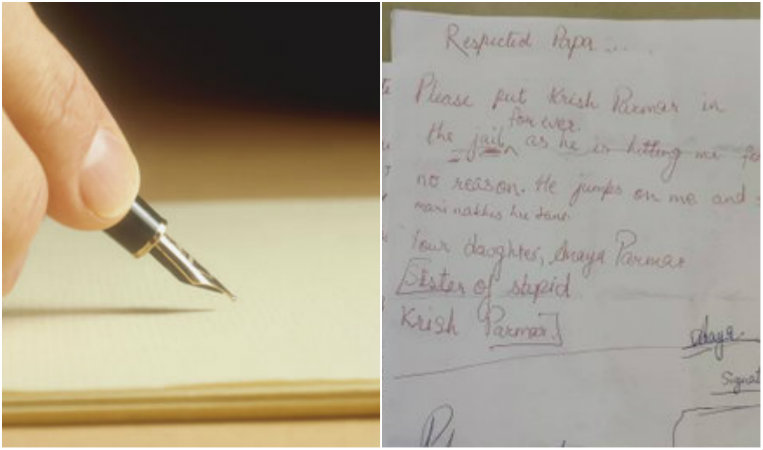 Respected Papa .....
Please put Krish Parmar in
for ever.
the jail, as he is hitting me fo
no reason. He jumps on me and
mari nakhis hu tane
Your daughter, Anaya Parmar
[Sister of stupid
Krish Parmar]
Anaya.
Signat